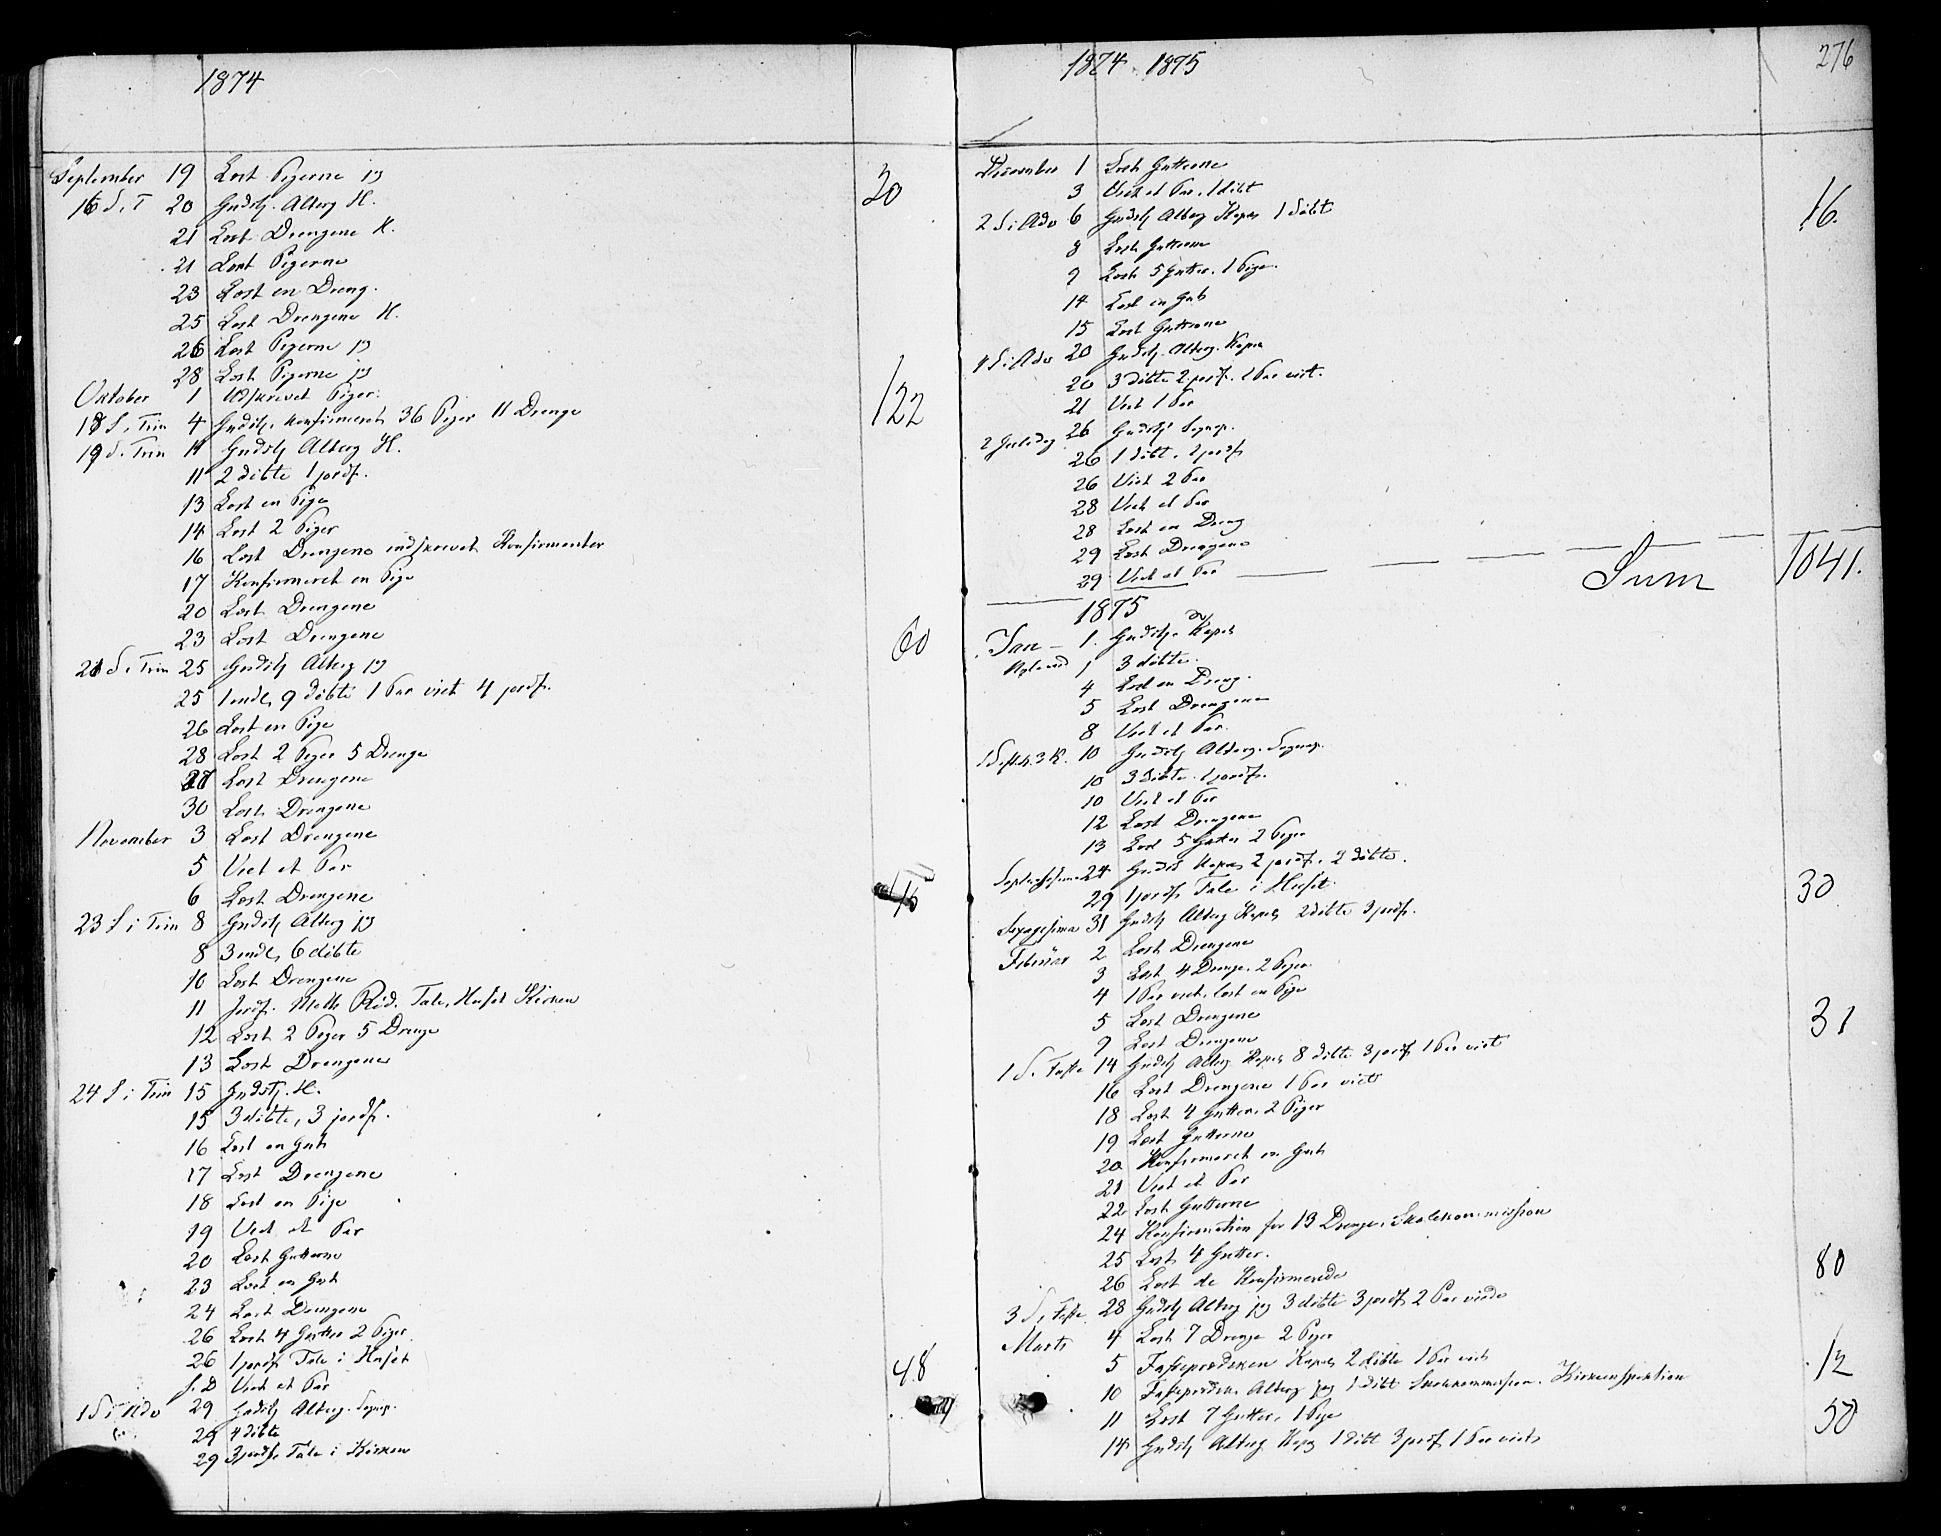 1874
September 19 Læst Pigerne jg
16 S. T 20 Gudstj. Alterg H. 20
21 Læst Drengene H.
21 Læst Pigerne
23 Læst en Dreng.
25 Læst Drengene H.
26 Læst Pigerne jg
28 Læst Pigerne jg
Oktober 1 Udskrevet Piger.
18 S. Trin 4 Gudstj. Konfirmeret 36 Piger 11 Drenge 122
19 S. Trin 11 Gudstj Alterg H.
11 2 döbte 1 jordf.
13 Læst en Pige
14 Læst 2 Piger
16 Læst Drengene indskrevet Konfirmenter
17 Konfirmeret en Pige
20 Læst Drengene
23 Læst Drengene
21 S. Trin 25 Gudstj Alterg jg 60
25 1 indl, 9 döbte 1 Par viet 4 jordf.
26 Læst en Pige
28 Læst 2 Piger 5 Drenge
27 Læst Drengene
30 Læst Drengene
November 3 Læst Drengene
5 Viet et Par
6 Læst Drengene
23 S i Trin 8 Gudstj Alterg jg
8 3 indl, 6 döbte
10 Læst Drengene
11 Jordf. Tale, Huset Kirken
12 Læst 2 Piger 5 Drenge
13 Læst Drengene
24 S i Trin 15 Gudstj. H.
15 3 döbte, 3 jordf.
16 Læst en Gut
17 Læst Drengene
18 Læst en Pige
19 Viet et Par
20 Læst Gutterne
23 Læst en Gut
24 Læst Drengene
26 Læst 4 Gutter 2 Piger
26 1 jordf Tale i Huset
s. D Viet et Par 48
1 S i Adv 29 Gudstj Alterg. Sognep.
29 4 döbte
29 3 jordf. Tale i Kirken
1874 1875 276
December 1 Læst Gutterne
3 Viet et Par, 1 döbt
2 S i Adv 6 Gudstj Alterg Kapel 1 döbt 16.
8 Læst Gutterne
9 Læst 5 Gutter. 1 Pige.
14 Læst en Gut
15 Læst Gutterne
4 S i Adv 20 Gudstj. Alterg. Kapel
20 3 döbte 2 jordf. 1 Par viet.
21 Viet 1 Par
2 Juledag 26 Gudstj Sognep.
26 1 döbt. 1 jordf
26 Viet 2 Par
28 Viet et Par
28 Læst en Dreng
29 Læst Drengene
29 Viet et Par Sum 1041.
1875
Jan 1. Gudstj. Kapel
1 3 döbte.
4 Læst en Dreng.
5 Læst Drengene
8 Viet et Par.
10 Gudstj Alterg. Sognep.
10 3 döbte. 1 jordf.
10 Viet et Par
12 Læst Drengene
13 Læst 5 Gutter 2 Piger
Septuagesima 24 Gudst Kapel 2 jordf. 2 döbte.
29 1 jordf Tale i Huset. 30
Sexagesima 31 Gudstj Alterg Kapel 2 döbte 3 jordf.
Februar 2 Læst Drengene
3 Læst 4 Drenge. 2 Piger
4 1 Par viet, læst en Pige
5 Læst Drengene
9 Læst Drengene 31
1 S. Faste 14 Gudstj Alterg Kapel 8 döbte 3 jordf 1 Par viet
16 Læst Drengene 1 Par viet
18 Læst 4 Gutter. 2 Piger
19 Læst Gutterne
20 Konfirmeret en Gut
21 Viet et Par
22 Læst Gutterne
24 Konfirmation for 13 Drenge. Skolekommission
25 Læst 4 Gutter.
26 Læst de Konfirmerede 80
3 S i Faste 28 Gudstj Alterg jeg 3 döbte 3 jordf 2 Par viede
Marts 4 Læst 7 Drenge 2 Piger
5 Fasteprædiken Kapel 2 döbte 1 Par viet 12
10 Fasteprædiken Alterg jeg 1 döbt Skolekommission. Kirkeinspektion
11 Læst 7 Gutter, 1 Pige 50
14 Gudstj Alterg Kapel 1 döbt 3 jordf 1 Par viet